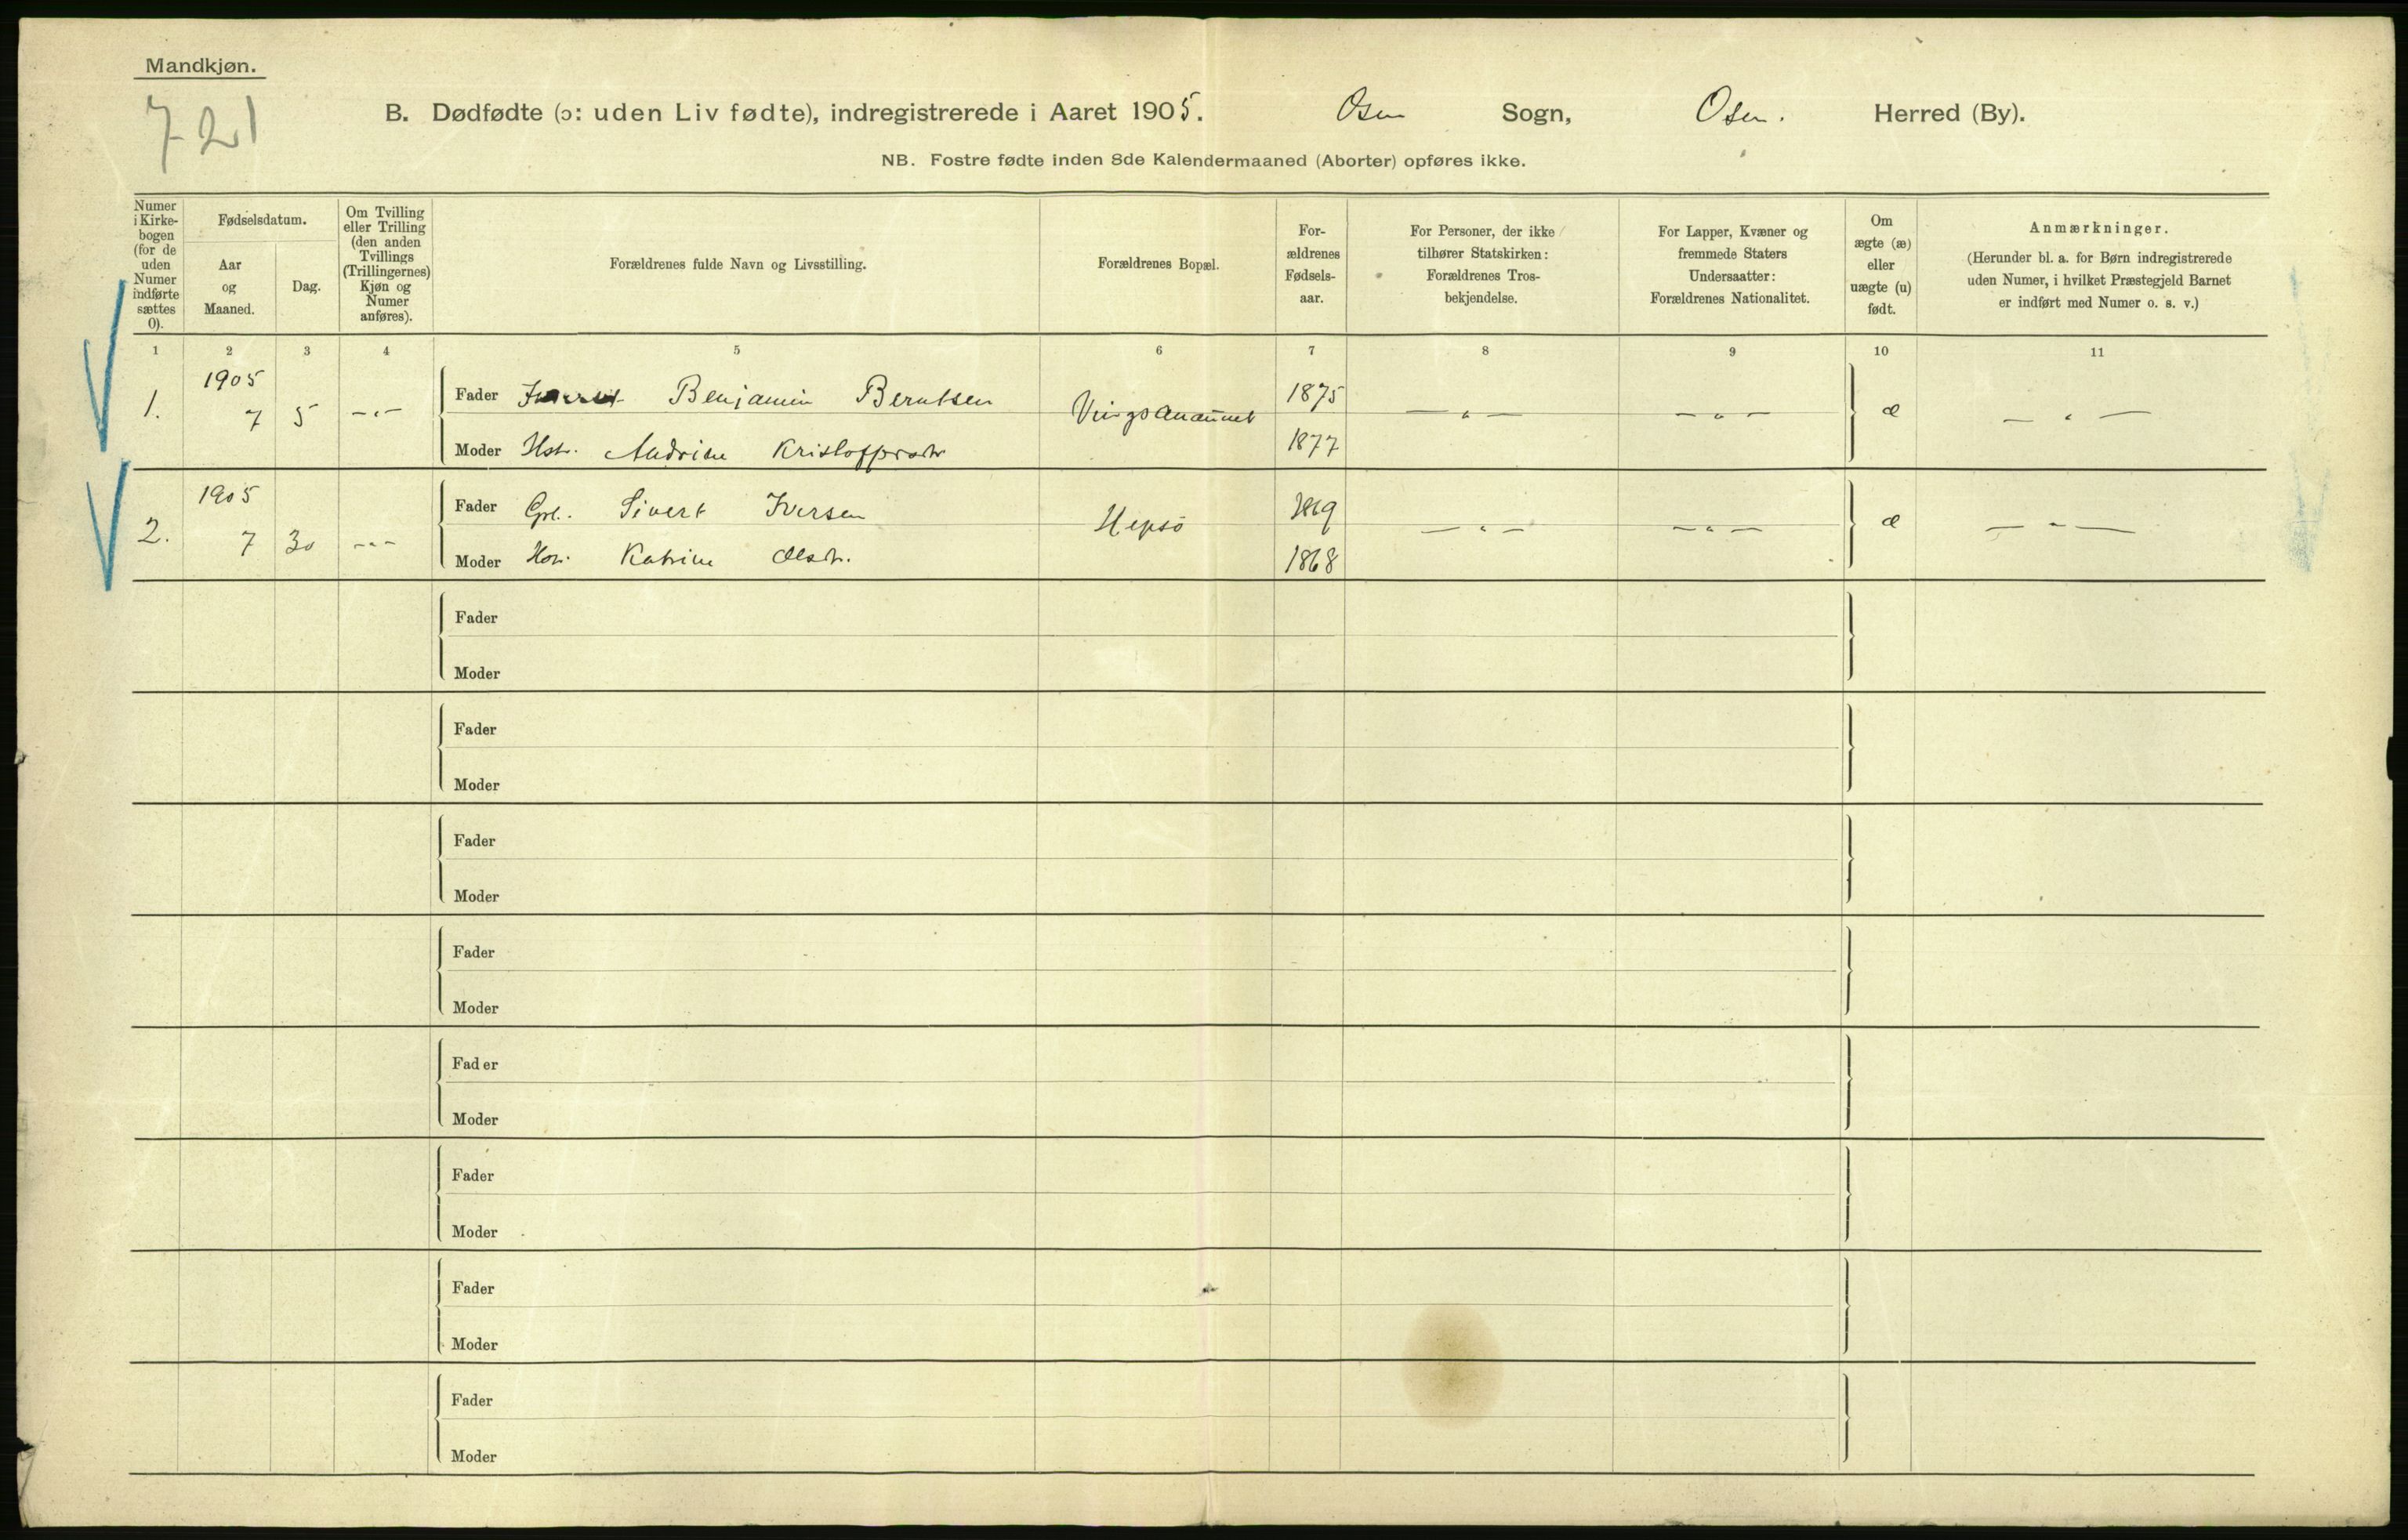 Mandkjøn.
721
B. Dødfødte (ɔ: uden Liv fødte), indregistrerede i Aaret 1905. Osen Sogn, Osen. Herred (By).
NB. Fostre fødte inden 8de Kalendermaaned (Aborter) opføres ikke.
Numer
i Kirke-
bogen
(for de
uden
Numer
indførte
sættes
0).
Fødselsdatum.
Aar
og
Maaned.
Dag.
Om Tvilling
eller Trilling
(den anden
Tvillings
(Trillingernes)
Kjøn og
Numer
anføres).
Forældrenes fulde Navn og Livsstilling.
Forældrenes Bopæl.
For-
ældrenes
Fødsels-
aar.
For Personer, der ikke
tilhører Statskirken:
Forældrenes Tros-
bekjendelse.
For Lapper, Kvæner og
fremmede Staters
Undersaatter:
Forældrenes Nationalitet.
Om
ægte (æ)
eller
uægte (u)
født.
Anmærkninger.
(Herunder bl. a. for Børn indregistrerede
uden Numer, i hvilket Præstegjeld Barnet
er indført med Numer o. s. v.)
1 2 3 4 5 6 7 8 9 10 11
1905
1. 7 5 -"-
Fader Benjamin Berntsen 1875 -"- -"- æ -"-
Moder Hst. Andrine Kristoffersdtr 1877
1905
2. 7 30 -"-
Fader Gbr. Sivert Iversen Hepsö 1869 -"- -"- æ -"-
Moder Hst. Katrine Olsdtr. 1868
Fader
Moder
Fader
Moder
Fader
Moder
Fader
Moder
Fader
Moder
Fader
Moder
Fader
Moder
Fader
Moder